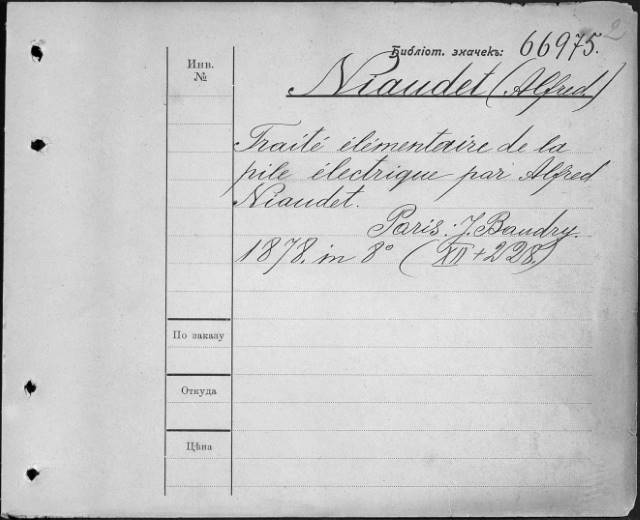 2
Библіот. значекъ: 66975.
Инв.
№
Niaudet (Alfred)
Traité élémentaire de la
pile électrique par Alfred
Niaudet.
Paris: J. Baudry.
1878. in 8° (XII + 228.)
По заказу
Откуда
Цѣна